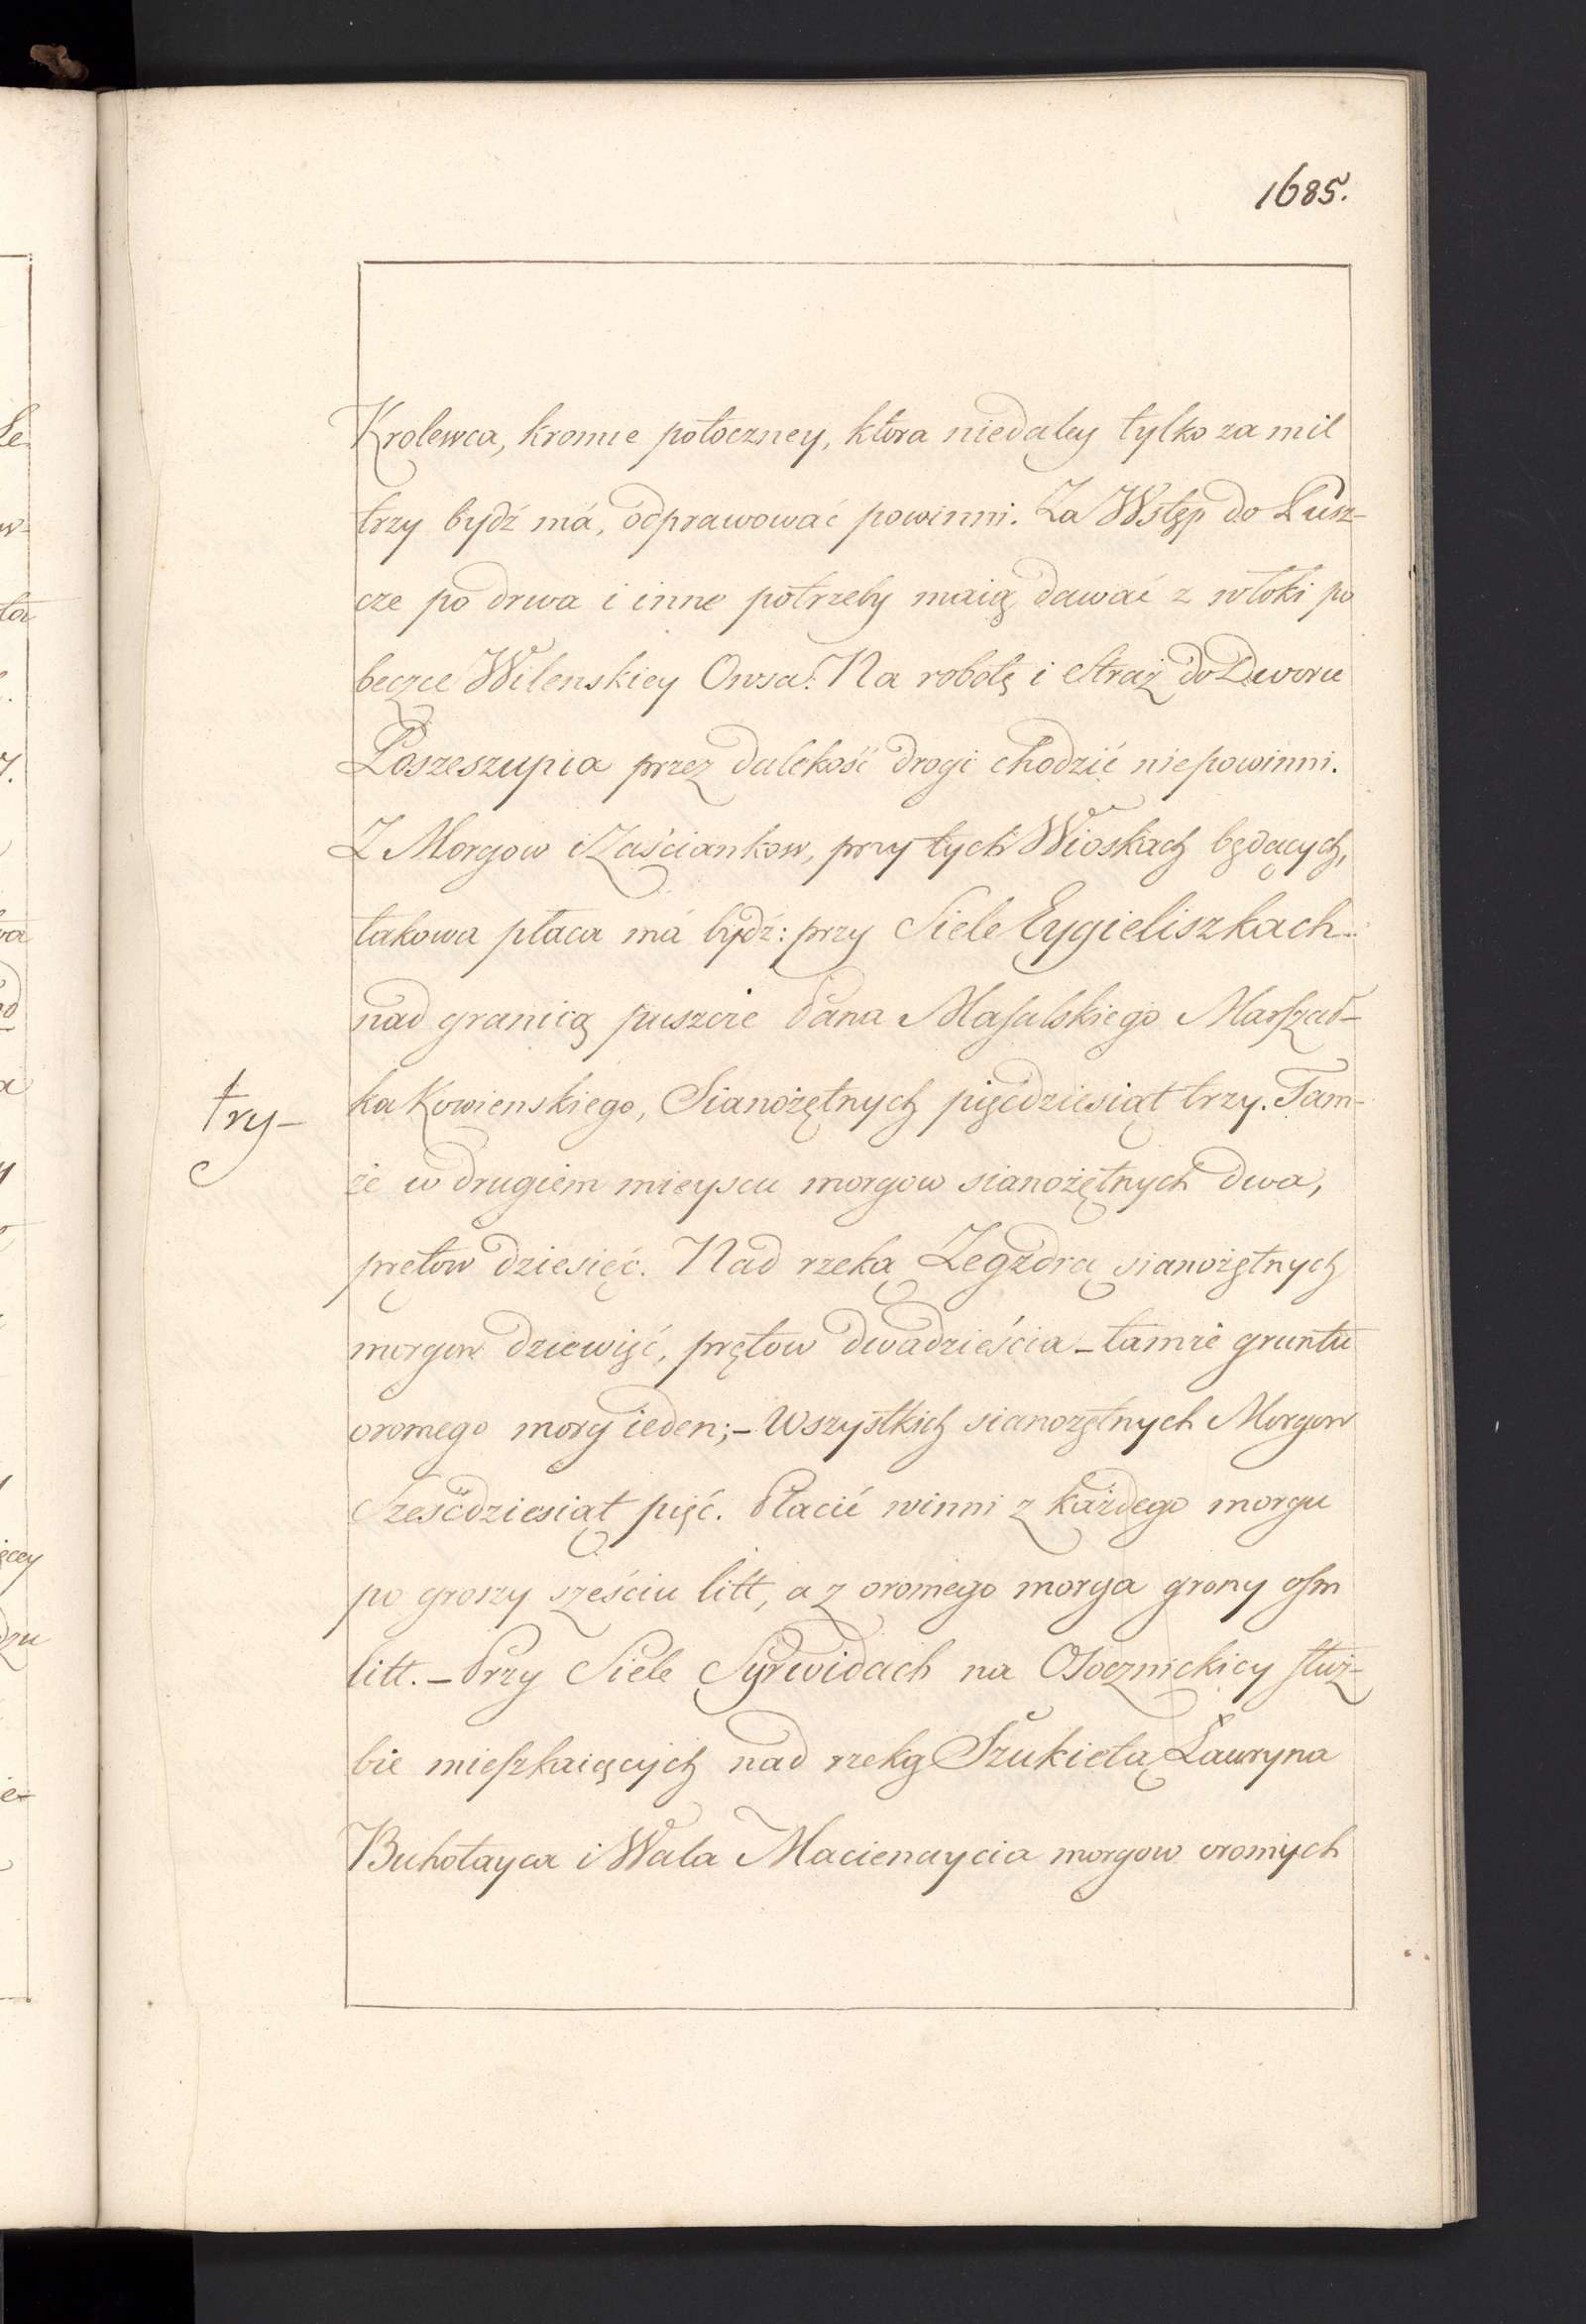 1685.
Krolewca, kromie potoczney, ktora niedaley tylko za mil
trzy bydź má, odprawować powinni. Za Wstęp do Pusz-
cze po drwa i inne potrzeby maią dawać z włoki po
beczce Wilenskiey Owsa. Na robotę i Straż do Dworu
Poszeszupia przez dalekość drogi chodzić niepowinni.
Z Morgow i Zaściankow, przy tych Wioskach będących,
takowa płaca má bydź: przy Siele Eygieliszkach
nad granicą puszcze Pana Masalskiego Marszał-
ka Kowienskiego, Sianożętnych pięćdziesiąt trzy. Tam-
try-
że w drugiem mieyscu morgow sianożętnych dwa,
prętow dziesięć. Nad rzeką Zegzdrą sianożętnych
morgow dziewięć, prętow dwadzieścia _ tamże gruntu
oromego morg ieden; _ Wszystkich sianożętnych Morgow
Sześćdziesiąt pięć. Płacić winni z każdego morgu
po groszy sześciu litt, a z oromego morga groszy osm
litt. _ Przy Siele Syrwidach na Osocznickiey służ-
bie mieszkaiących nad rzeką Szukietą Ławryna
Bukołayca i Wala Maciencycia morgow oromych